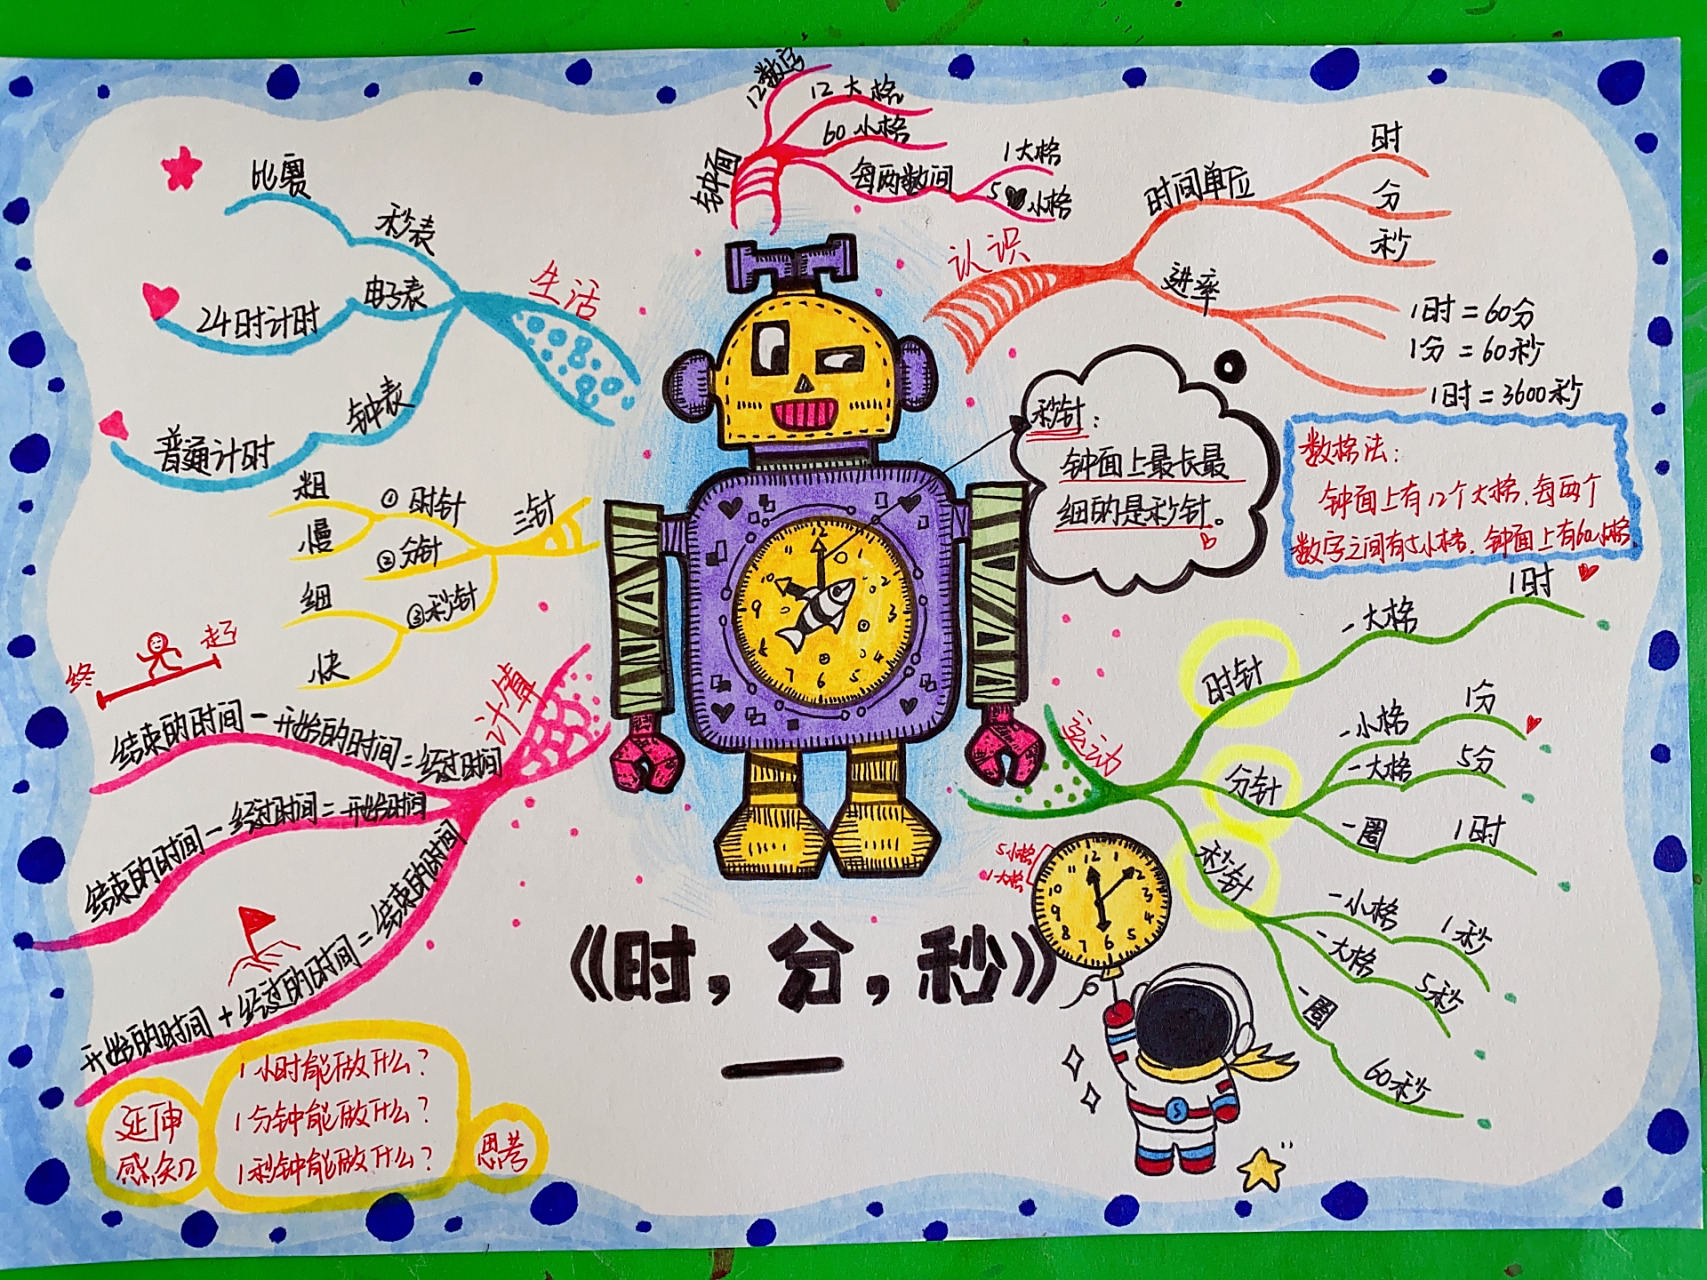 钟面
12数字
12大格
60小格
每两数间
1大格
5小格
认识
时间单位
时
分
秒
进率
1时=60分
1分=60秒
1时=3600秒
秒针:
钟面上最长最
细的是秒针。
数格法:
钟面上有12个大格,每两个
数字之间有5小格,钟面上有60小格。
生活
秒表
比赛
电子表
24时计时
钟表
普通计时
三针
①时针
粗
慢
②分针
③秒针
细
快
计算
终
起
结束的时间-开始的时间=经过时间
结束的时间-经过时间=开始时间
开始的时间+经过的时间=结束的时间
运动
时针
一大格
1时
分针
一小格
1分
一大格
5分
一圈
1时
秒针
一小格
1秒
一大格
5秒
一圈
60秒
5小格
1大格
12
1
2
3
4
5
6
7
8
9
10
11
《时,分,秒》
S
延伸
感知
1小时能做什么?
1分钟能做什么?
1秒钟能做什么?
思考